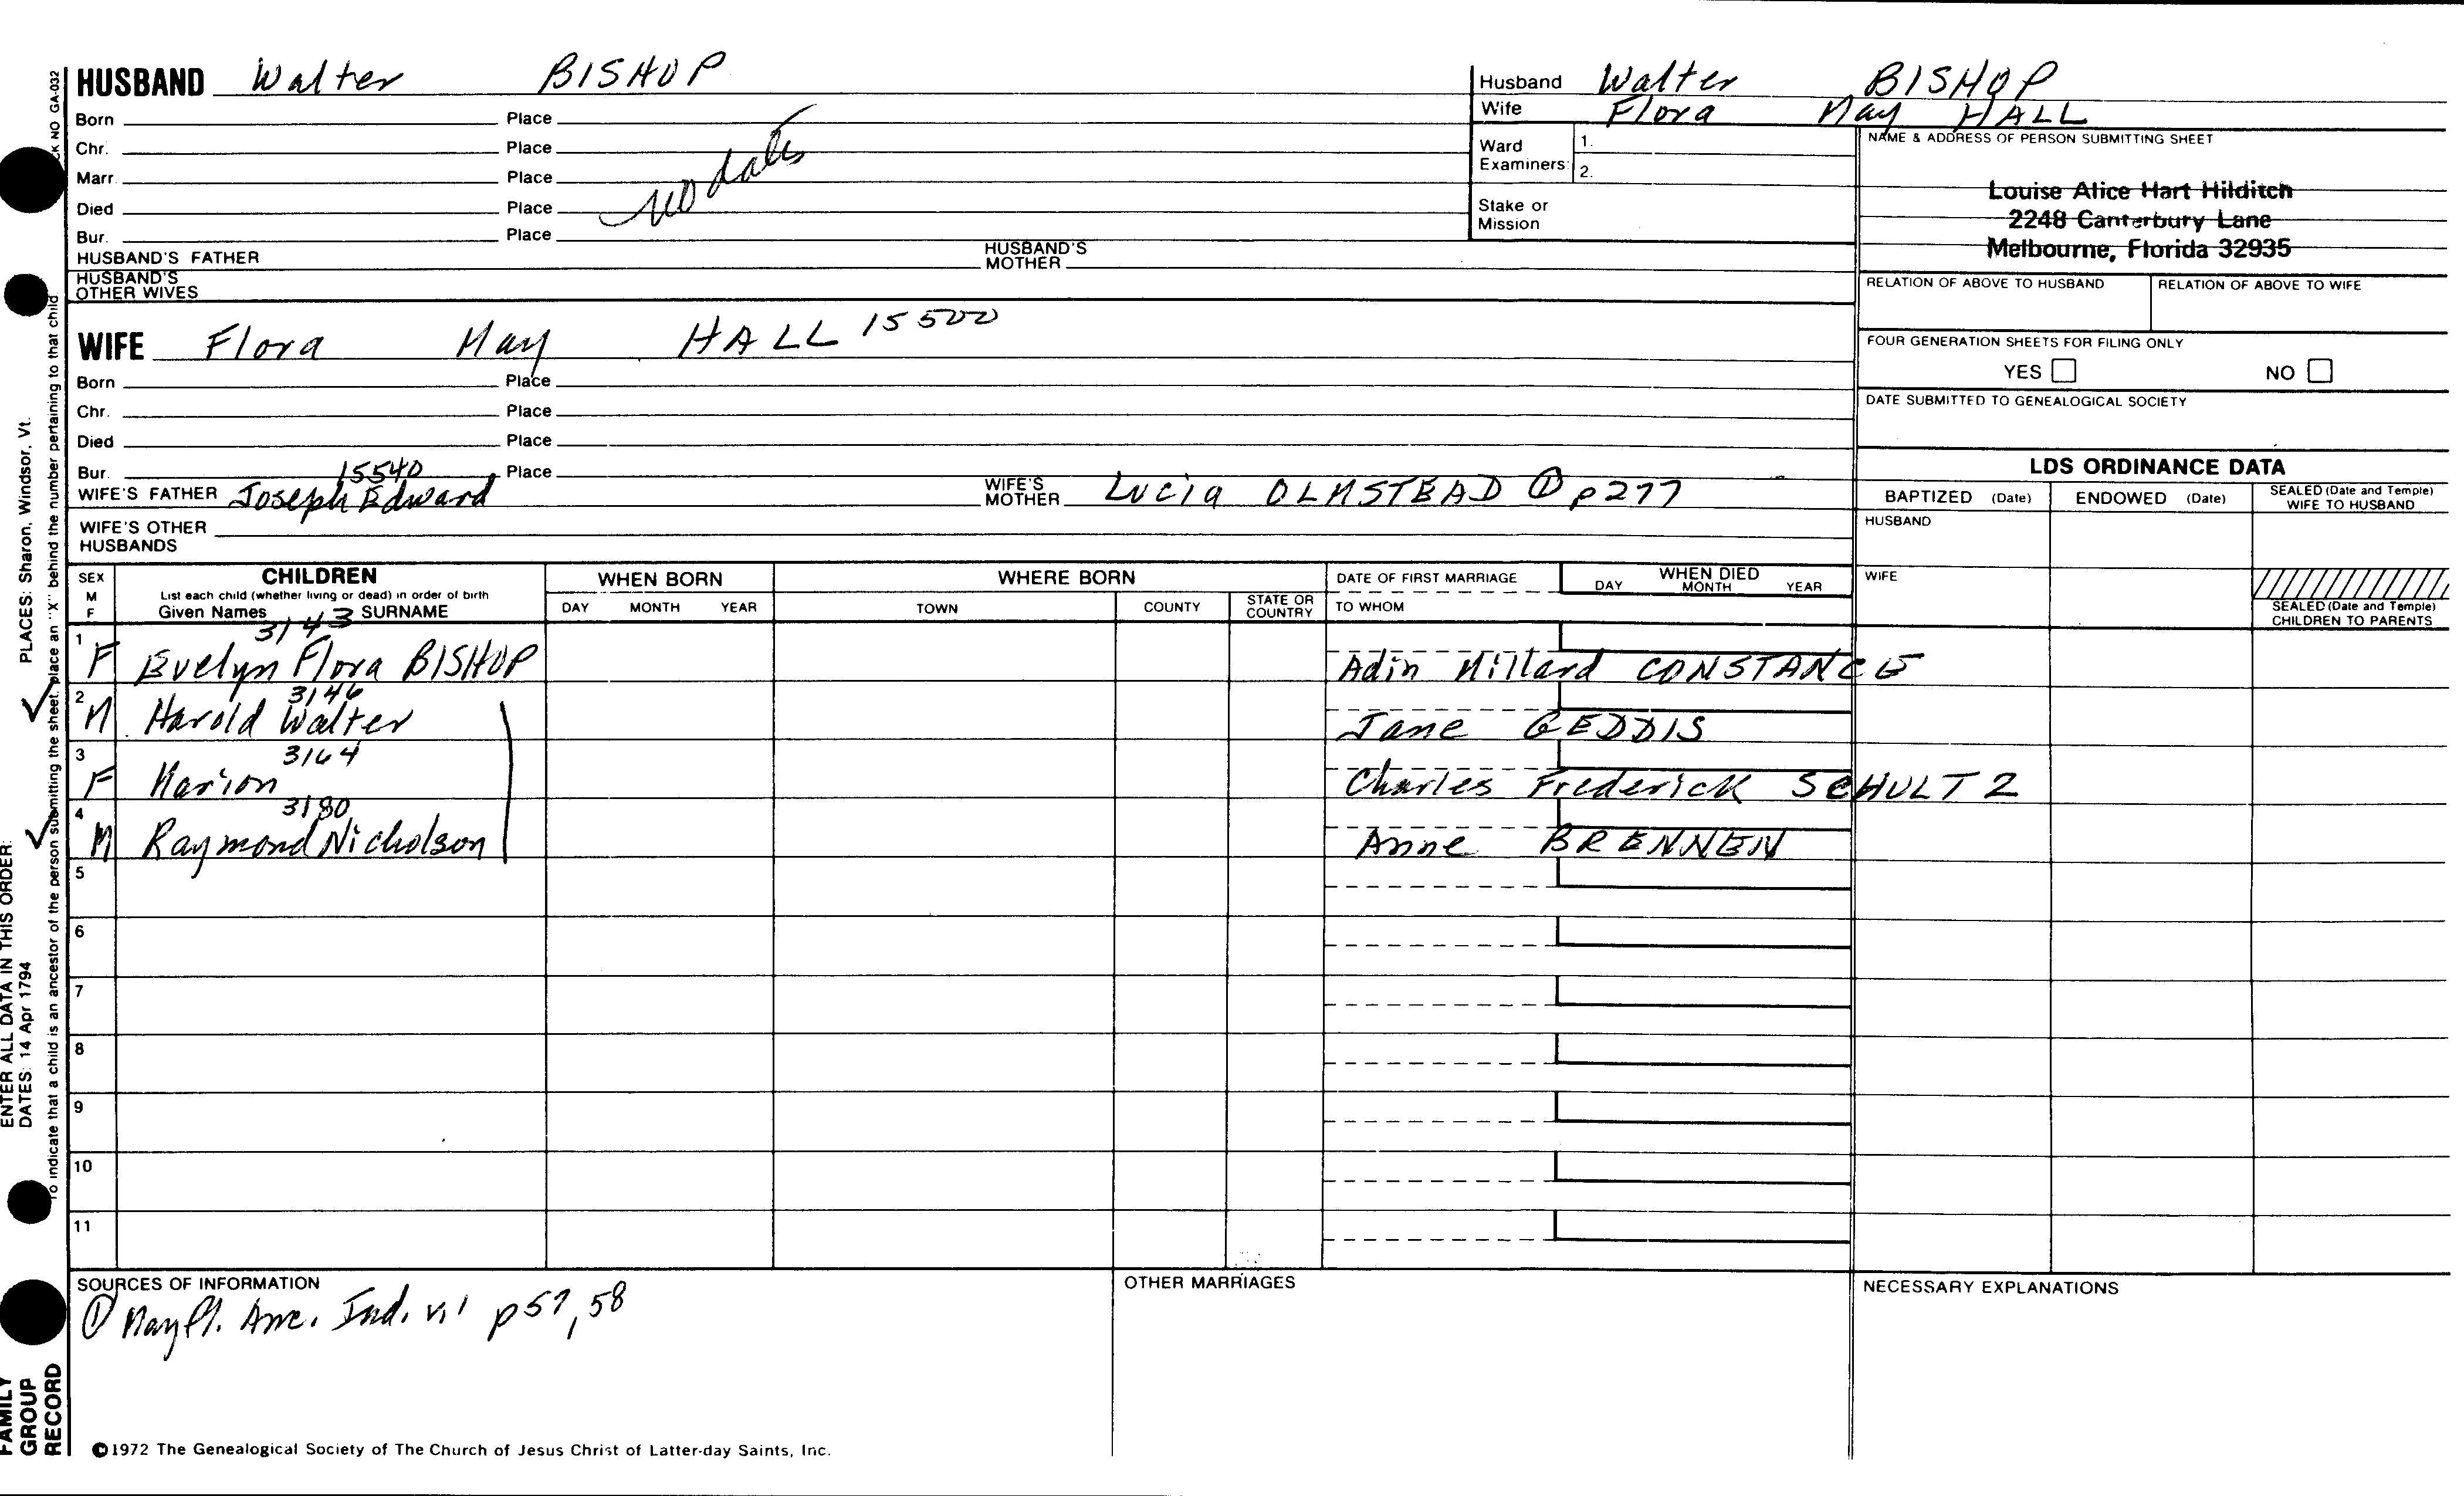 HUSBAND Walter BISHOP
Born Place
Chr. Place
Marr. Place
Died Place
Bur. Place
no dates
HUSBAND'S FATHER HUSBAND'S MOTHER
HUSBAND'S OTHER WIVES
WIFE Flora May HALL 15500
Born Place
Chr. Place
Died Place
Bur. Place
15540
WIFE'S FATHER Joseph Edward WIFE'S MOTHER Lucia OLMSTEAD ① p277
WIFE'S OTHER HUSBANDS
Husband Walter BISHOP
Wife Flora May HALL
Ward Examiners: 1.
2.
Stake or Mission
NAME & ADDRESS OF PERSON SUBMITTING SHEET
Louise Alice Hart Hilditch
2248 Canterbury Lane
Melbourne, Florida 32935
RELATION OF ABOVE TO HUSBAND RELATION OF ABOVE TO WIFE
FOUR GENERATION SHEETS FOR FILING ONLY
YES NO
DATE SUBMITTED TO GENEALOGICAL SOCIETY
LDS ORDINANCE DATA
BAPTIZED (Date) ENDOWED (Date) SEALED (Date and Temple) WIFE TO HUSBAND
HUSBAND
WIFE
SEALED (Date and Temple) CHILDREN TO PARENTS
SEX M F
CHILDREN
List each child (whether living or dead) in order of birth
Given Names SURNAME
WHEN BORN
DAY MONTH YEAR
WHERE BORN
TOWN COUNTY STATE OR COUNTRY
DATE OF FIRST MARRIAGE
TO WHOM
WHEN DIED
DAY MONTH YEAR
3143
1 F Evelyn Flora BISHOP Adin Millard CONSTANCE
3146
2 M Harold Walter Jane GEDDIS
3164
3 F Marion Charles Frederick SCHULTZ
3180
4 M Raymond Nicholson Anne BRENNEN
5
6
7
8
9
10
11
SOURCES OF INFORMATION
① Mayfl. Anc. Ind. v.1 p57,58
OTHER MARRIAGES
NECESSARY EXPLANATIONS
©1972 The Genealogical Society of The Church of Jesus Christ of Latter-day Saints, Inc.
NO GA-032
PLACES: Sharon, Windsor, Vt.
To indicate that a child is an ancestor of the person submitting the sheet, place an "X" behind the number pertaining to that child
ENTER ALL DATA IN THIS ORDER:
DATES: 14 Apr 1794
FAMILY
GROUP
RECORD